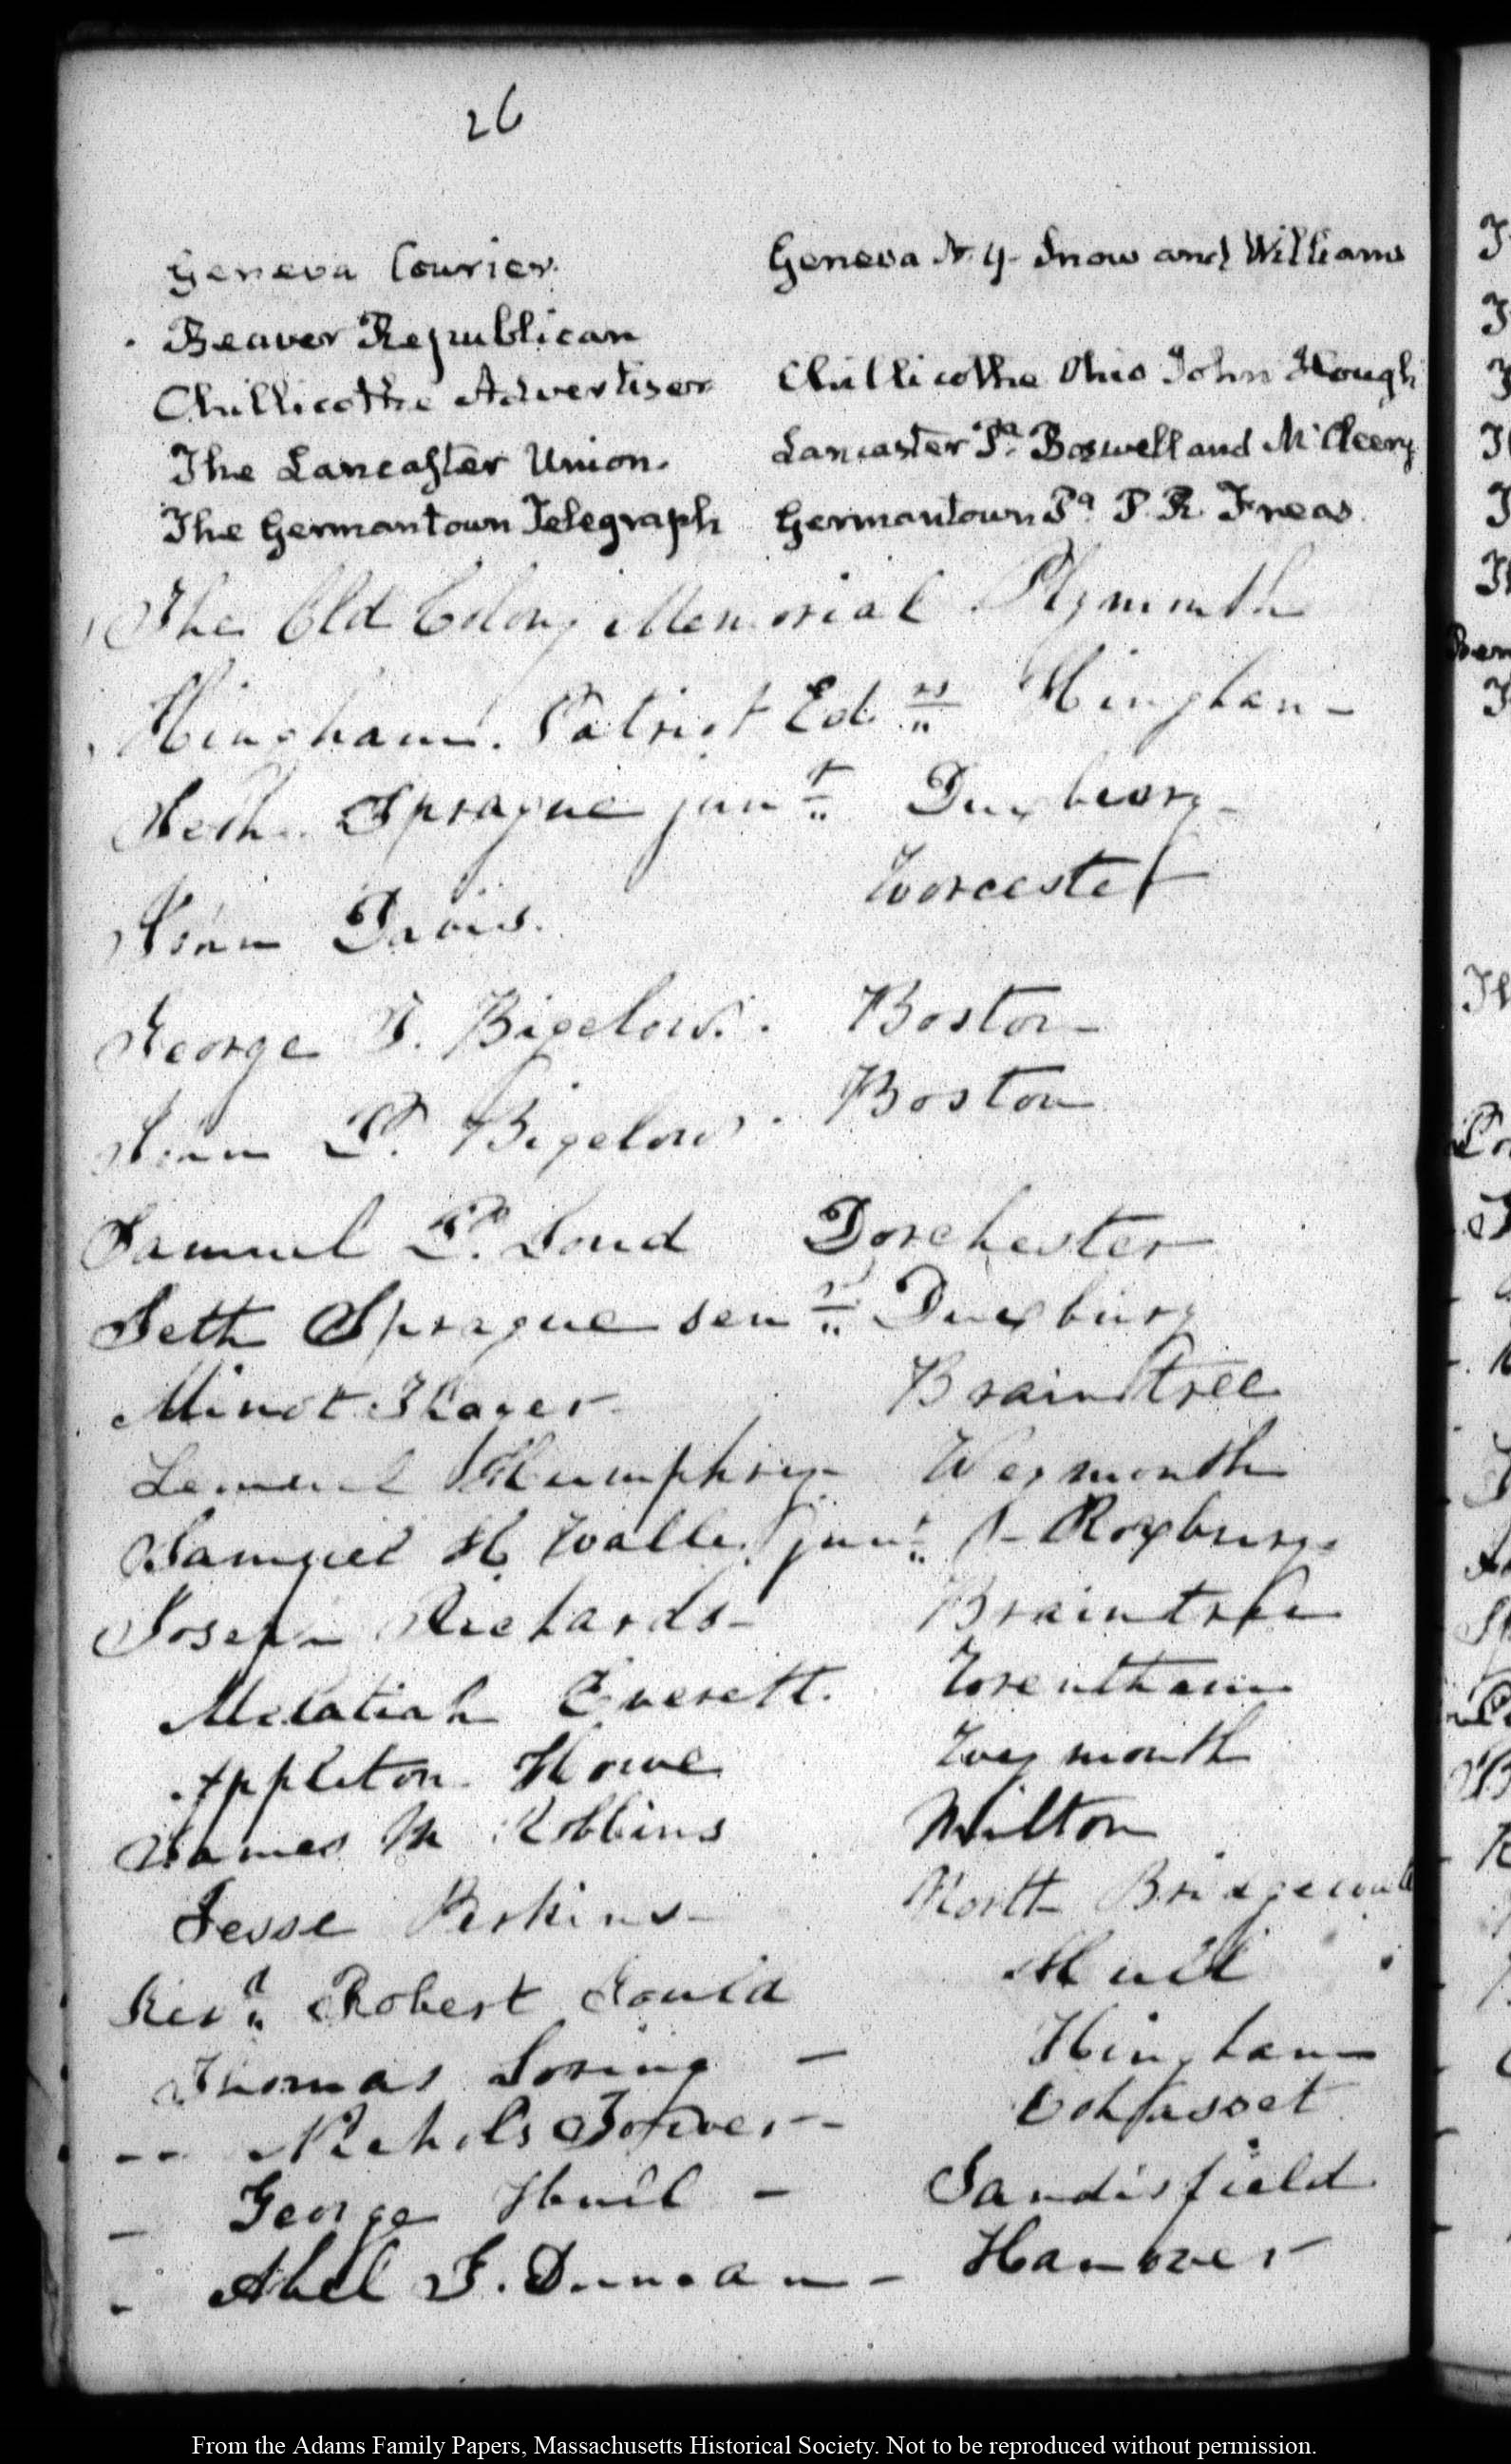 26
Geneva Courier. Geneva N. Y- Snow and Williams
Beaver Republican
Chillicothe Advertiser Chillicothe Ohio John Hough
The Lancaster Union. Lancaster Pa. Boswell and McCleery
The Germantown Telegraph Germantown Pa P. R. Freas.
The Old Colony Memorial Plymouth
Hingham. Patriot Edrs Hingham-
Seth Sprague junr Duxbury-
John Davis. Worcester
George T. Bigelow. Boston
John P. Bigelow. Boston
Samuel P. Loud Dorchester
Seth Sprague senr Duxbury
Minot Thayer Braintree
Lemuel Humphrey Weymouth
Samuel H Walley junr Roxbury-
Joseph Richards- Braintree
Melatiah Everett. Wrentham
Appleton Howe Weymouth
James M Robbins Milton
Jesse Perkins- North
Revd Robert Gould Hull
Thomas Loring - Hingham
-- Nichols Tower-- Cohasset
- George Hull - Sandisfield
- Abel G. Duncan- Hanover
From the Adams Family Papers, Massachusetts Historical Society. Not to be reproduced without permission.